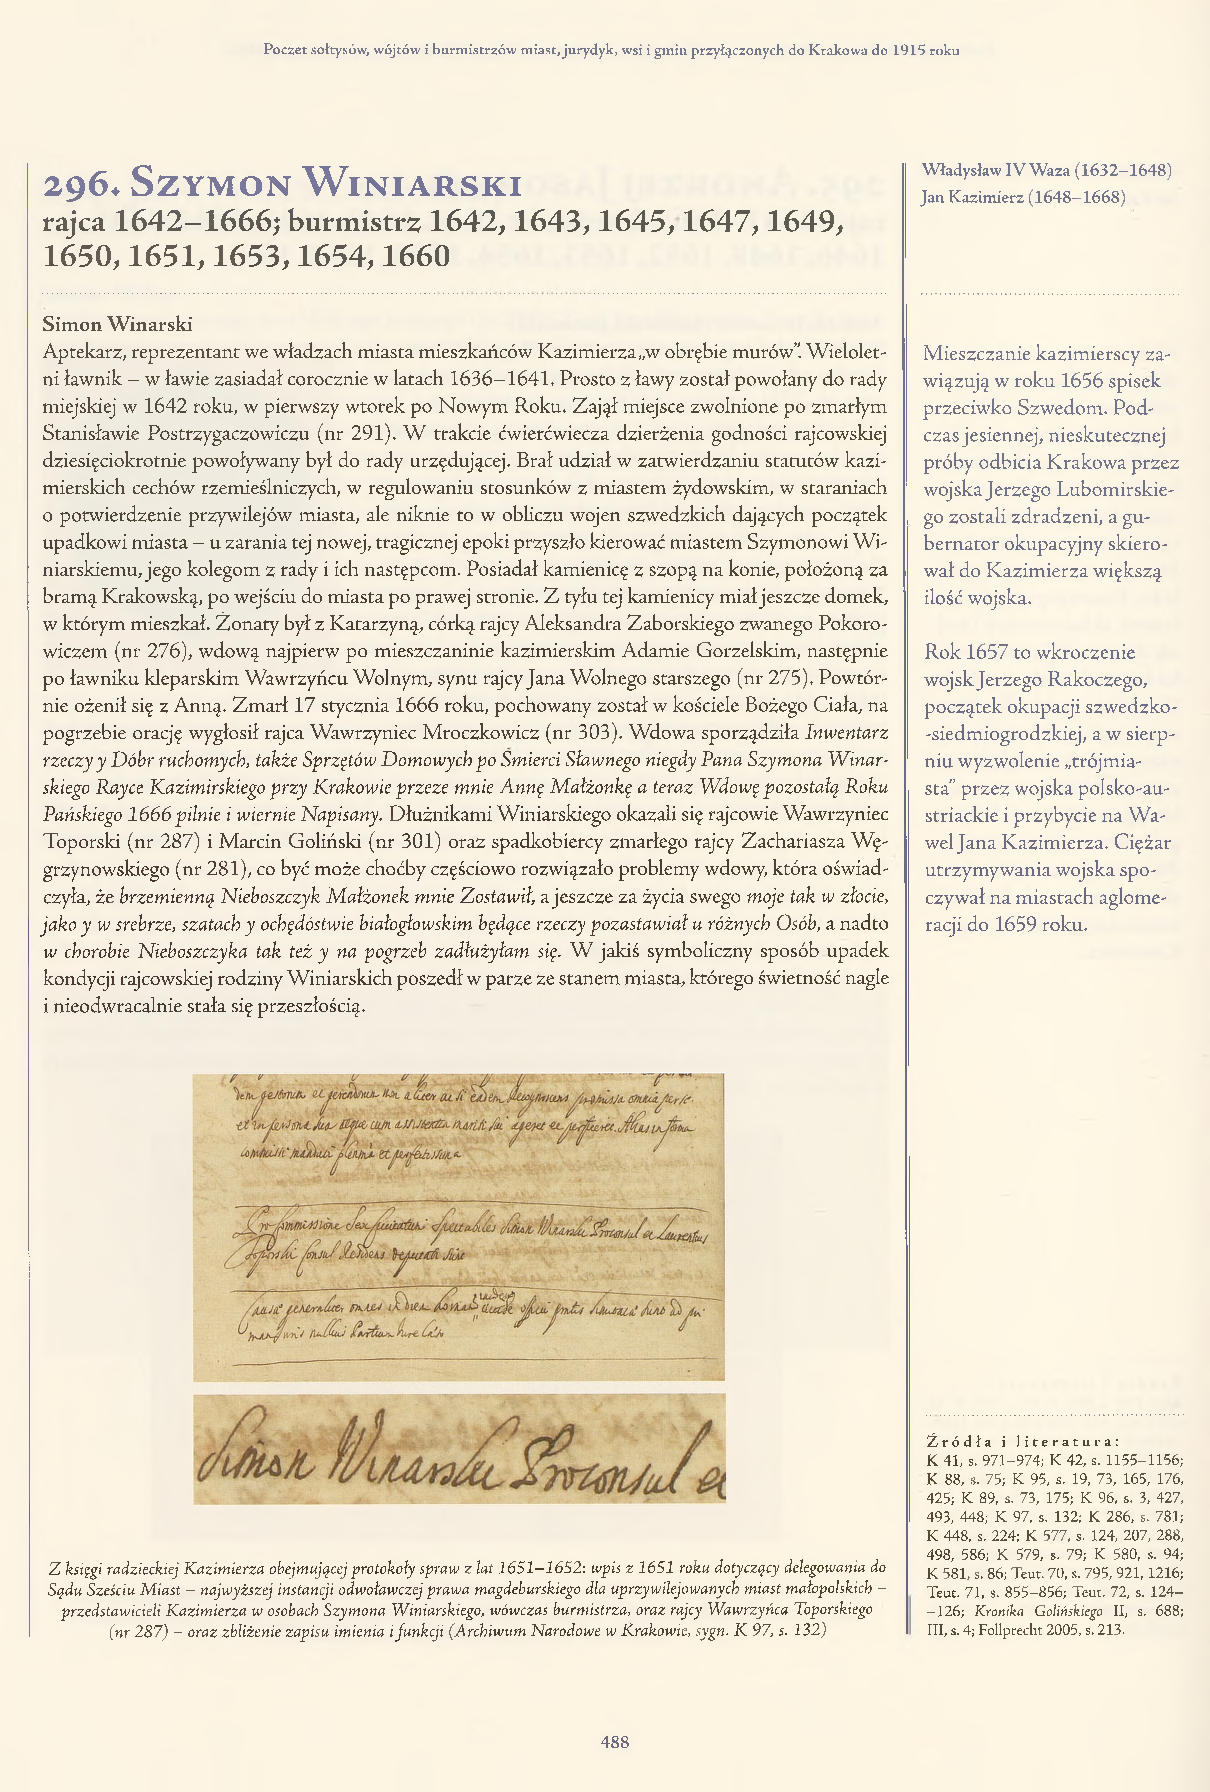 Poczet sołtysów, wójtów i burmistrzów miast, jurydyk, wsi i gmin przyłączonych do Krakowa do 1915 roku
296. Szymon Winiarski
rajca 1642–1666; burmistrz 1642, 1643, 1645, 1647, 1649,
1650, 1651, 1653, 1654, 1660
Simon Winarski
Aptekarz, reprezentant we władzach miasta mieszkańców Kazimierza „w obrębie murów”. Wielolet-
ni ławnik – w ławie zasiadał corocznie w latach 1636–1641. Prosto z ławy został powołany do rady
miejskiej w 1642 roku, w pierwszy wtorek po Nowym Roku. Zajął miejsce zwolnione po zmarłym
Stanisławie Postrzygaczowiczu (nr 291). W trakcie ćwierćwiecza dzierżenia godności rajcowskiej
dziesięciokrotnie powoływany był do rady urzędującej. Brał udział w zatwierdzaniu statutów kazi-
mierskich cechów rzemieślniczych, w regulowaniu stosunków z miastem żydowskim, w staraniach
o potwierdzenie przywilejów miasta, ale niknie to w obliczu wojen szwedzkich dających początek
upadkowi miasta – u zarania tej nowej, tragicznej epoki przyszło kierować miastem Szymonowi Wi-
niarskiemu, jego kolegom z rady i ich następcom. Posiadał kamienicę z szopą na konie, położoną za
bramą Krakowską, po wejściu do miasta po prawej stronie. Z tyłu tej kamienicy miał jeszcze domek,
w którym mieszkał. Żonaty był z Katarzyną, córką rajcy Aleksandra Zaborskiego zwanego Pokoro-
wiczem (nr 276), wdową najpierw po mieszczaninie kazimierskim Adamie Gorzelskim, następnie
po ławniku kleparskim Wawrzyńcu Wolnym, synu rajcy Jana Wolnego starszego (nr 275). Powtór-
nie ożenił się z Anną. Zmarł 17 stycznia 1666 roku, pochowany został w kościele Bożego Ciała, na
pogrzebie orację wygłosił rajca Wawrzyniec Mroczkowicz (nr 303). Wdowa sporządziła Inwentarz
rzeczy y Dóbr ruchomych, także Sprzętów Domowych po Śmierci Sławnego niegdy Pana Szymona Winar-
skiego Rayce Kazimirskiego przy Krakowie przeze mnie Annę Małżonkę a teraz Wdowę pozostałą Roku
Pańskiego 1666 pilnie i wiernie Napisany. Dłużnikami Winiarskiego okazali się rajcowie Wawrzyniec
Toporski (nr 287) i Marcin Goliński (nr 301) oraz spadkobiercy zmarłego rajcy Zachariasza Wę-
grzynowskiego (nr 281), co być może choćby częściowo rozwiązało problemy wdowy, która oświad-
czyła, że brzemienną Nieboszczyk Małżonek mnie Zostawił, a jeszcze za życia swego moje tak w złocie,
jako y w srebrze, szatach y ochędóstwie białogłowskim będące rzeczy pozastawiał u różnych Osób, a nadto
w chorobie Nieboszczyka tak też y na pogrzeb zadłużyłam się. W jakiś symboliczny sposób upadek
kondycji rajcowskiej rodziny Winiarskich poszedł w parze ze stanem miasta, którego świetność nagle
i nieodwracalnie stała się przeszłością.
Simon Winarski Proconsul et
Z księgi radzieckiej Kazimierza obejmującej protokoły spraw z lat 1651–1652: wpis z 1651 roku dotyczący delegowania do
Sądu Sześciu Miast – najwyższej instancji odwoławczej prawa magdeburskiego dla uprzywilejowanych miast małopolskich –
przedstawicieli Kazimierza w osobach Szymona Winiarskiego, wówczas burmistrza, oraz rajcy Wawrzyńca Toporskiego
(nr 287) – oraz zbliżenie zapisu imienia i funkcji (Archiwum Narodowe w Krakowie, sygn. K 97, s. 132)
Władysław IV Waza (1632–1648)
Jan Kazimierz (1648–1668)
Mieszczanie kazimierscy za-
wiązują w roku 1656 spisek
przeciwko Szwedom. Pod-
czas jesiennej, nieskutecznej
próby odbicia Krakowa przez
wojska Jerzego Lubomirskie-
go zostali zdradzeni, a gu-
bernator okupacyjny skiero-
wał do Kazimierza większą
ilość wojska.
Rok 1657 to wkroczenie
wojsk Jerzego Rakoczego,
początek okupacji szwedzko-
-siedmiogrodzkiej, a w sierp-
niu wyzwolenie „trójmia-
sta” przez wojska polsko-au-
striackie i przybycie na Wa-
wel Jana Kazimierza. Ciężar
utrzymywania wojska spo-
czywał na miastach aglome-
racji do 1659 roku.
Źródła i literatura:
K 41, s. 971–974; K 42, s. 1155–1156;
K 88, s. 75; K 95, s. 19, 73, 165, 176,
425; K 89, s. 73, 175; K 96, s. 3, 427,
493, 448; K 97, s. 132; K 286, s. 781;
K 448, s. 224; K 577, s. 124, 207, 288,
498, 586; K 579, s. 79; K 580, s. 94;
K 581, s. 86; Teut. 70, s. 795, 921, 1216;
Teut. 71, s. 855–856; Teut. 72, s. 124–
–126; Kronika Golińskiego II, s. 688;
III, s. 4; Follprecht 2005, s. 213.
488